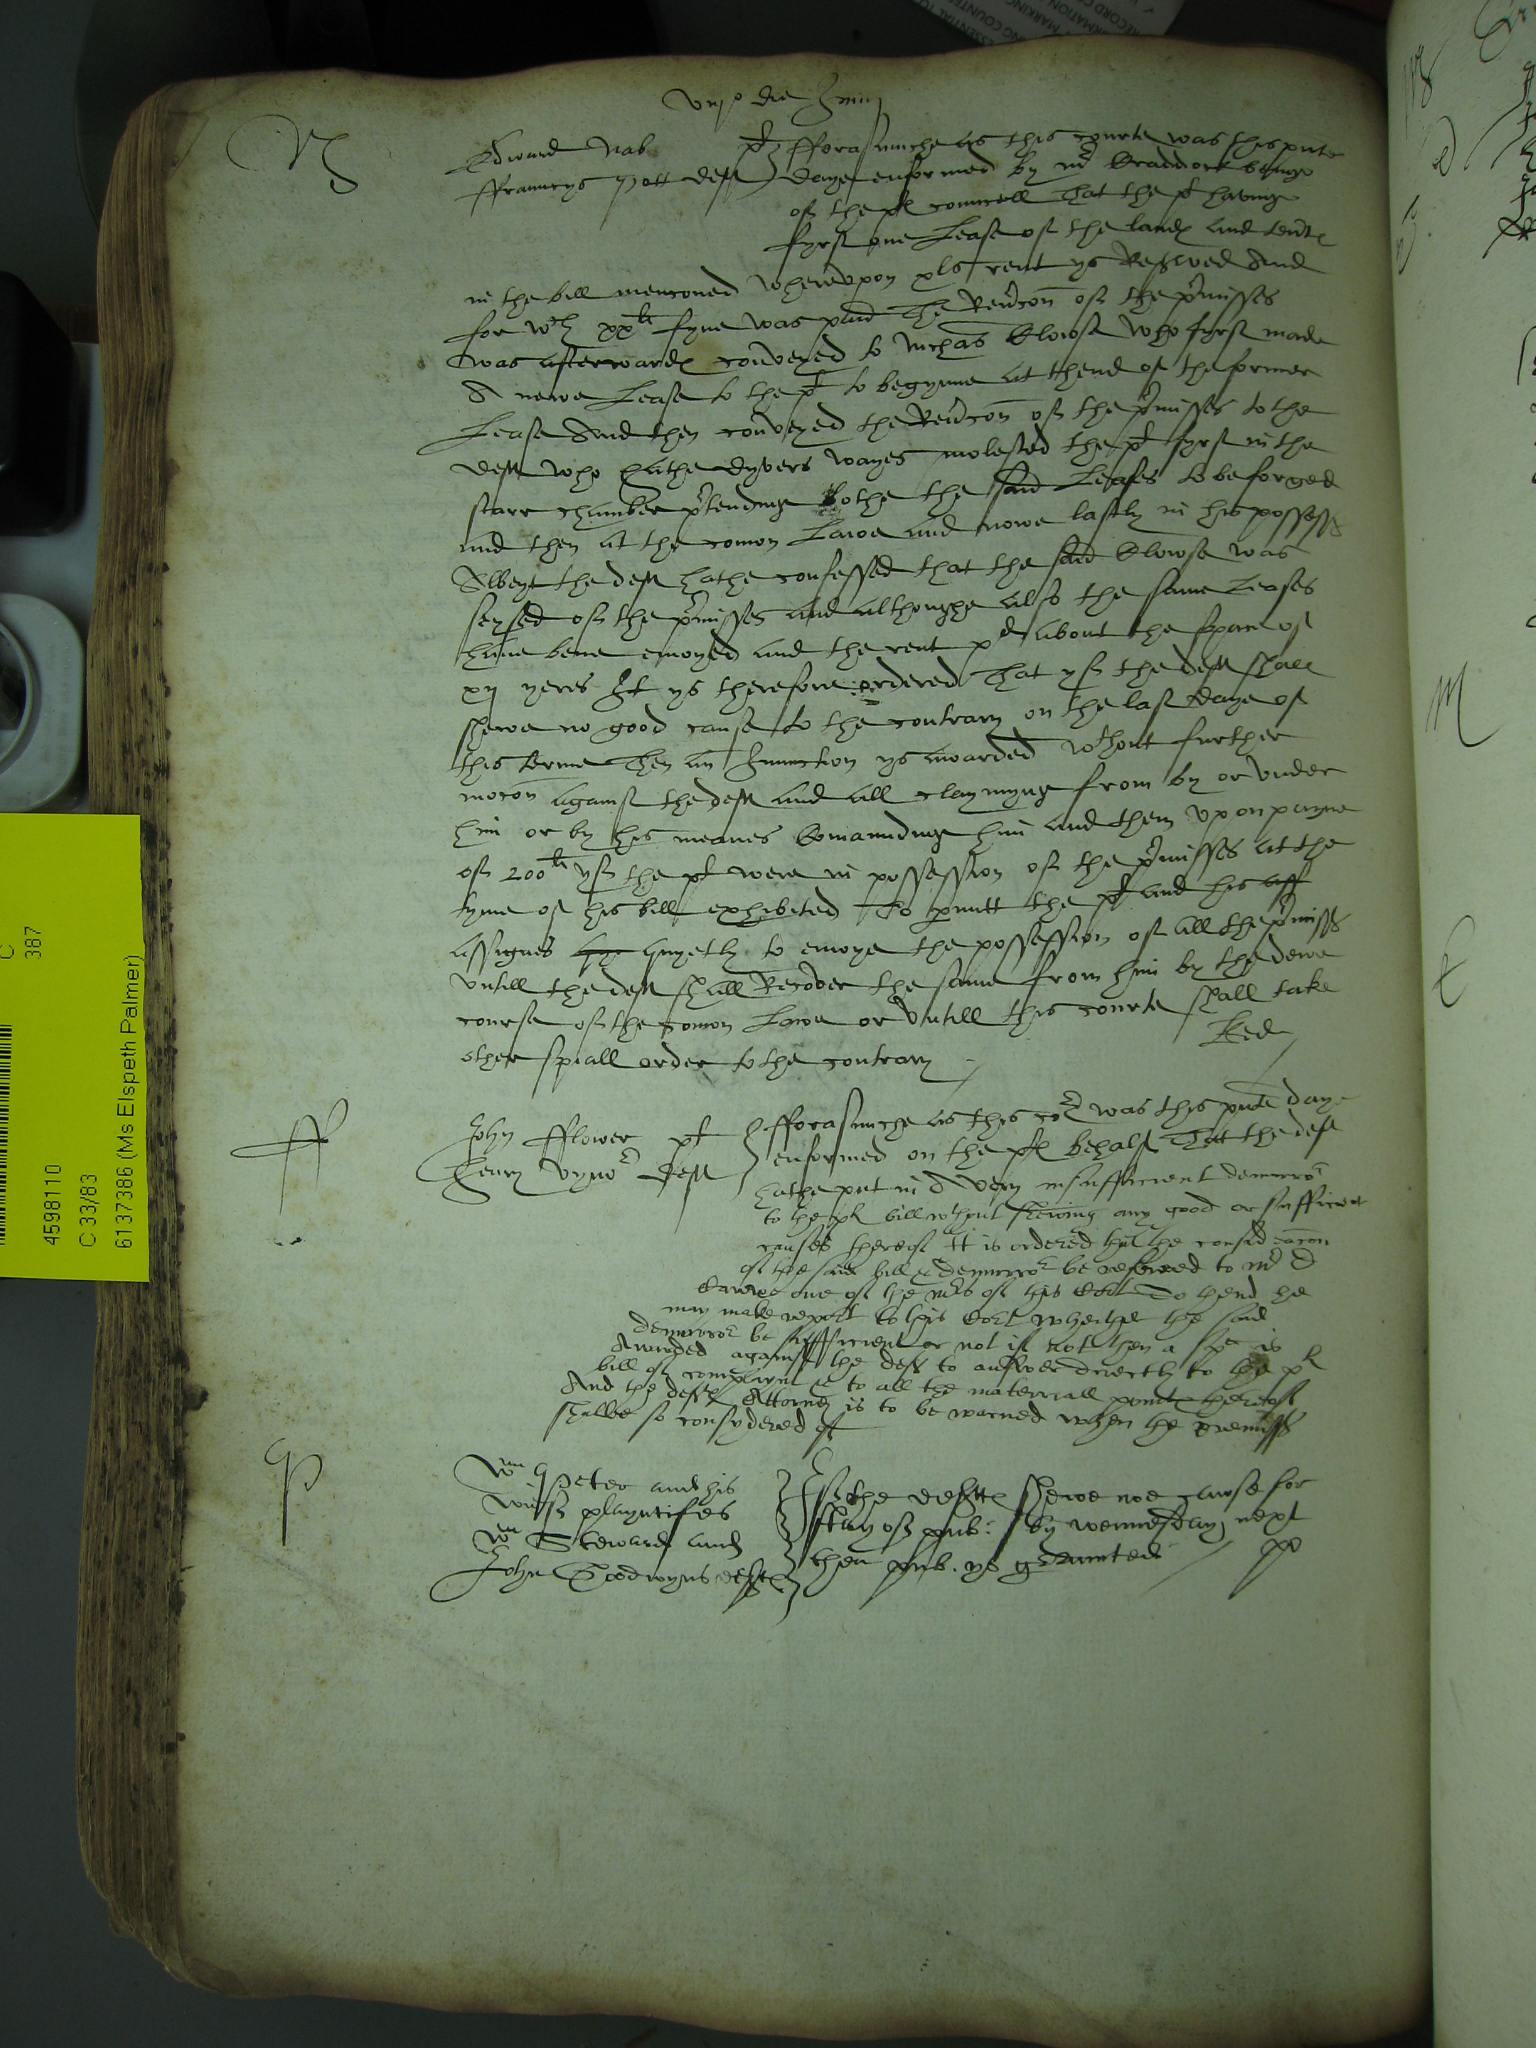 die Junij
N
Edward Nab pl
ffrauncys Pott deft
fforasmuche as this courte was this pnte
daye enformed by mr Braddock beinge
of the pls councell That the pl havinge
fyrst one Lease of the lands and tents
in the bill mencioned whereupon xls rent ys Reserved And
for wch xxli fyne was paid The Revcon of the pmisses
was afterwards conveyed to Michas Blowse who fyrst made
A newe Lease to the pl to begynne at thend of the former
Lease And then conveyed the Revcon of the pmisses to the
deft who hathe dyvers wayes molested the pl fyrst in the
starr chamber ptendinge bothe the said Leases to be forged
and then at the comon Lawe and nowe lastly in his possess
Albeyt the deft hathe confessed that the said Blowse was
seysed of the pmisses and althoughe also the same Leases
have bene enioyed and the rent pd about the space of
xij yeres It ys therefore ordered That yf the deft shall
shewe no good cause to the contrary on the last daye of
this terme Then an Iniunction ys awarded wthout further
mocon against the deft and all claymynge from by or under
him or by his meanes Comaundinge him and them upon payne
of 200li yf the pl were in possession of the pmisses at the
tyme of his bill exhibited To pmitt the pl and his ass
assignes quyetly to enioye the possession of all the pmisses
untill the deft shall Recover the same from him by the dewe
course of the comon Lawe or untill this courte shall take
other spiall order to the contrary
ff
John fflower pl
Henry deft
fforasmuche as this cort was this pnte daye
enformed on the pls behalf That the deft
hathe put in a very insufficient demurror
to the pls bill wthout shewing any good or sufficient
causes thereof It is ordered that the consideracon
of the said bill & demurror be referred to mr D
Carewe one of the mrs of this Cort To thend he
may make report to this Cort whether the said
demurror be sufficient or not if not then a spa is
Awarded against the deft to answer directly to the pls
bill of complaynt & to all the materiall points thereof
And the defts Attorney is to be warned when the premisses
shalbe so consydered of
P
Wm Peter and his
wief playntifes
Wm Steward and
John Goodwyns defts
If the defts shewe noe cause for
stay of pub: by wennesday next
then pub. ys graunted
C
387
4598110
C 33/83
6137386 (Ms Elspeth Palmer)
M